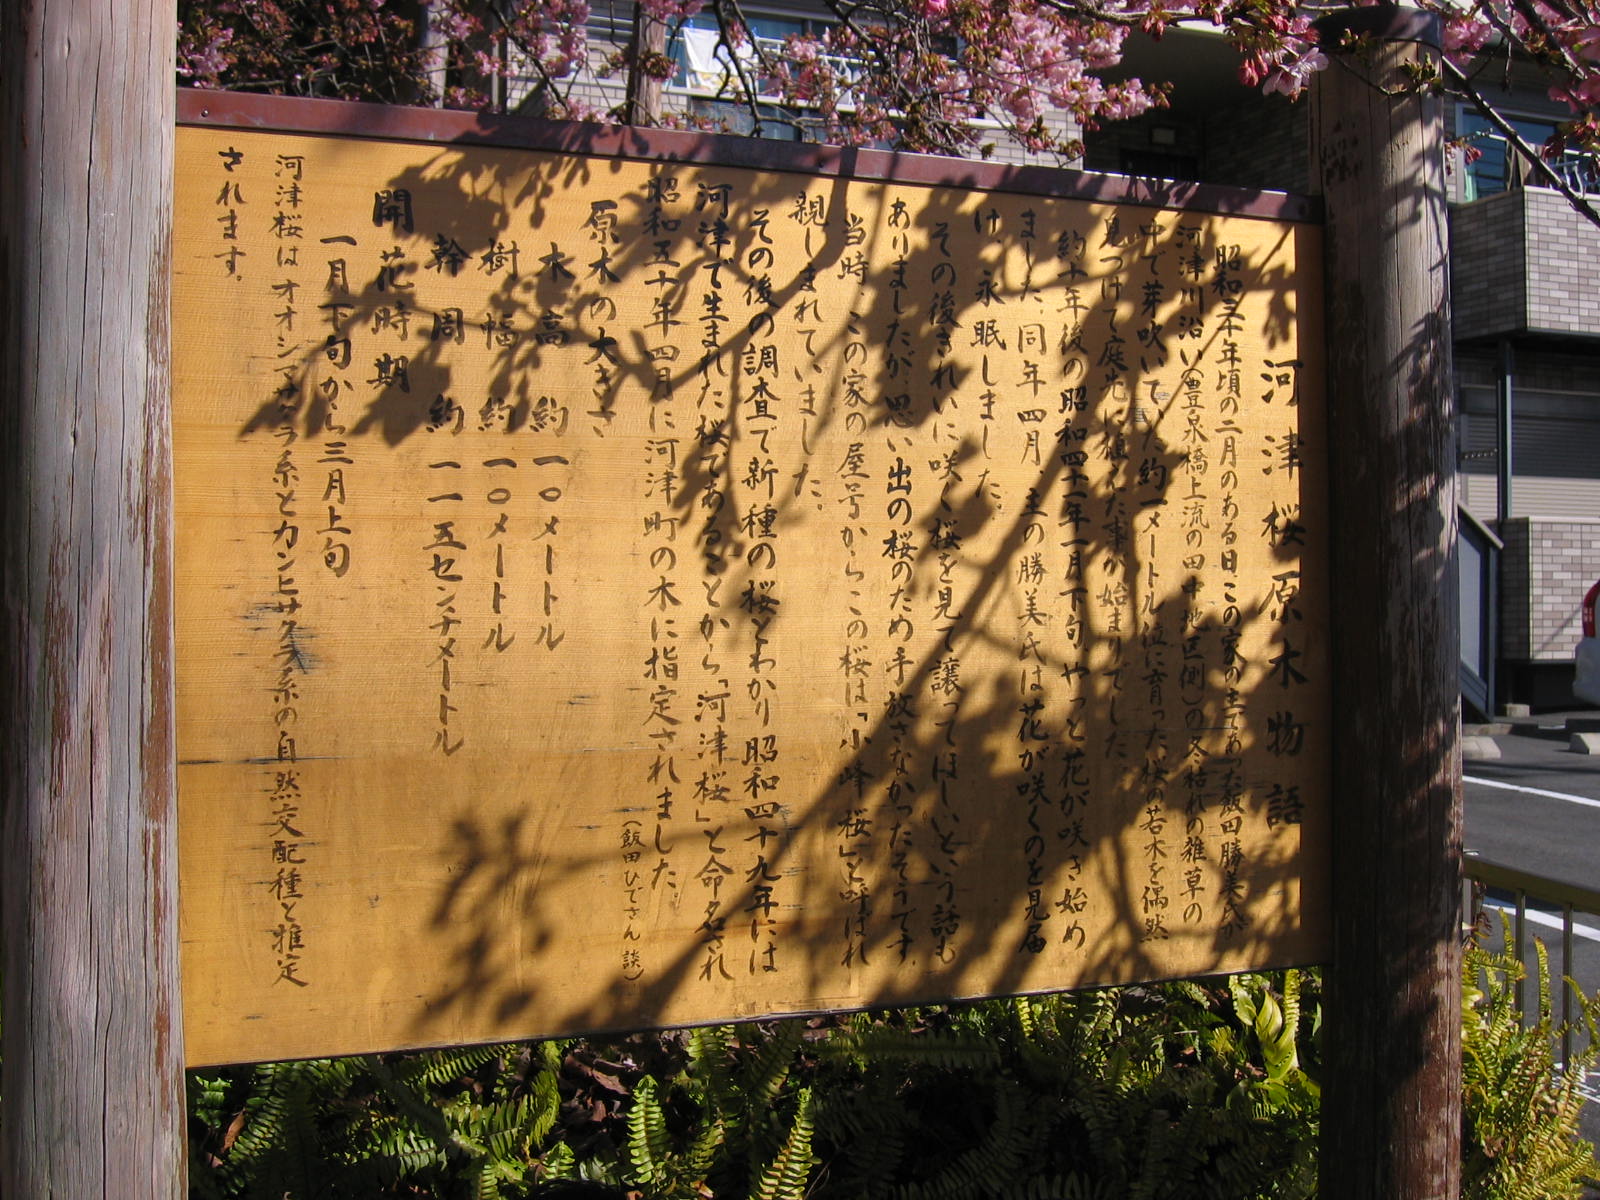 河津桜原木物語
昭和三十年頃の二月のある日、この家の主であった飯田勝美氏が
河津川沿い(豊泉橋上流の田中地区側)の冬枯れの雑草の
中で芽吹いていた約一メートル位に育った桜の若木を偶然
見つけて庭先に植えた事が始まりでした。
約十年後の昭和四十一年一月下旬、やっと花が咲き始め
ました。同年四月、主の勝美氏は花が咲くのを見届
け、永眠しました。
その後きれいに咲く桜を見て譲ってほしいという話も
ありましたが、思い出の桜のため手放さなかったそうです。
当時、この家の屋号からこの桜は「小峰桜」と呼ばれ
親しまれていました。
その後の調査で新種の桜とわかり昭和四十九年には
河津で生まれた桜であることから「河津桜」と命名され
昭和五十年四月に河津町の木に指定されました。
(飯田ひでさん談)
原木の大きさ
木高 約一〇メートル
樹幅 約一〇メートル
幹周 約一一五センチメートル
開花時期
一月下旬から三月上旬
河津桜はオオシマザクラ系とカンヒザクラ系の自然交配種と推定
されます。